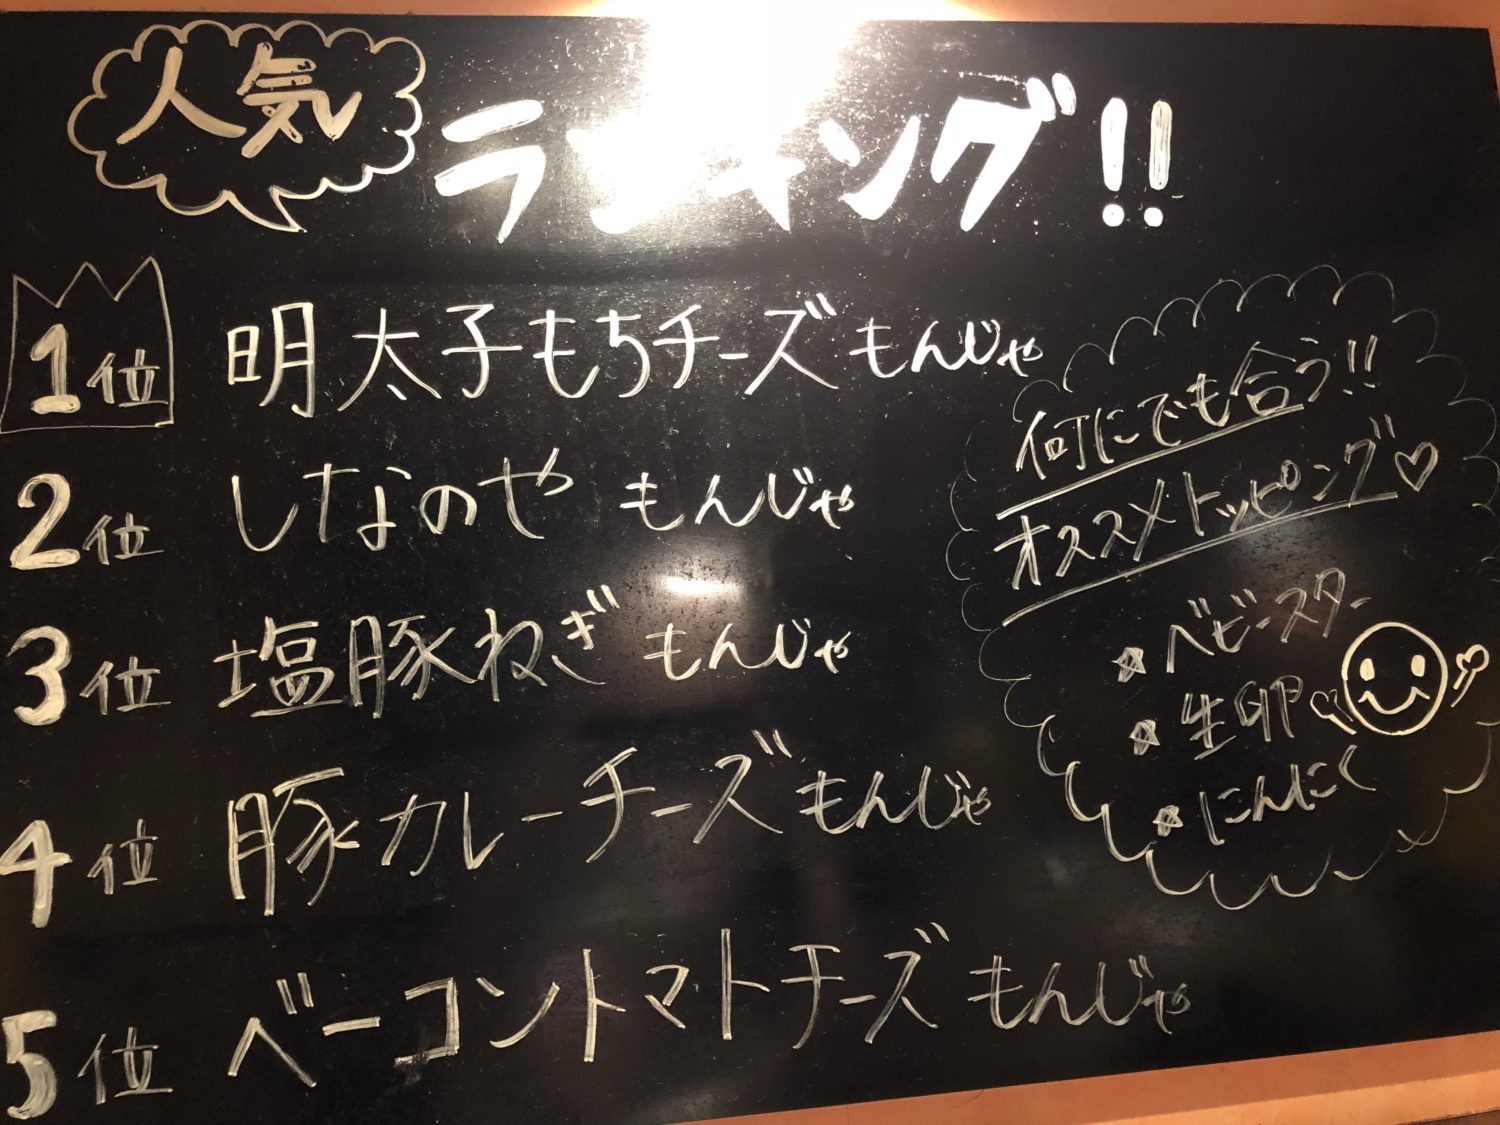 人気
ランキング!!
1位 明太子もちチーズもんじゃ
2位 しなのや もんじゃ
3位 塩豚ねぎ もんじゃ
4位 豚カレーチーズもんじゃ
5位 ベーコントマトチーズ もんじゃ
何にでも合う!!
オススメトッピング♡
☆ベビースター
☆生卵
☆にんにく